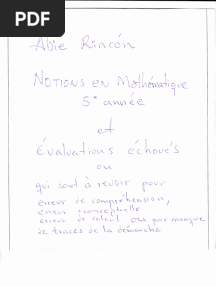 PDF
Abie Rincón
Notions en Mathématique
5e année
et
Évaluations échoués
ou
qui sont à revoir pour
erreur de compréhension,
erreur conceptuelle
erreur de calcul ou par manque
de traces de la démarche